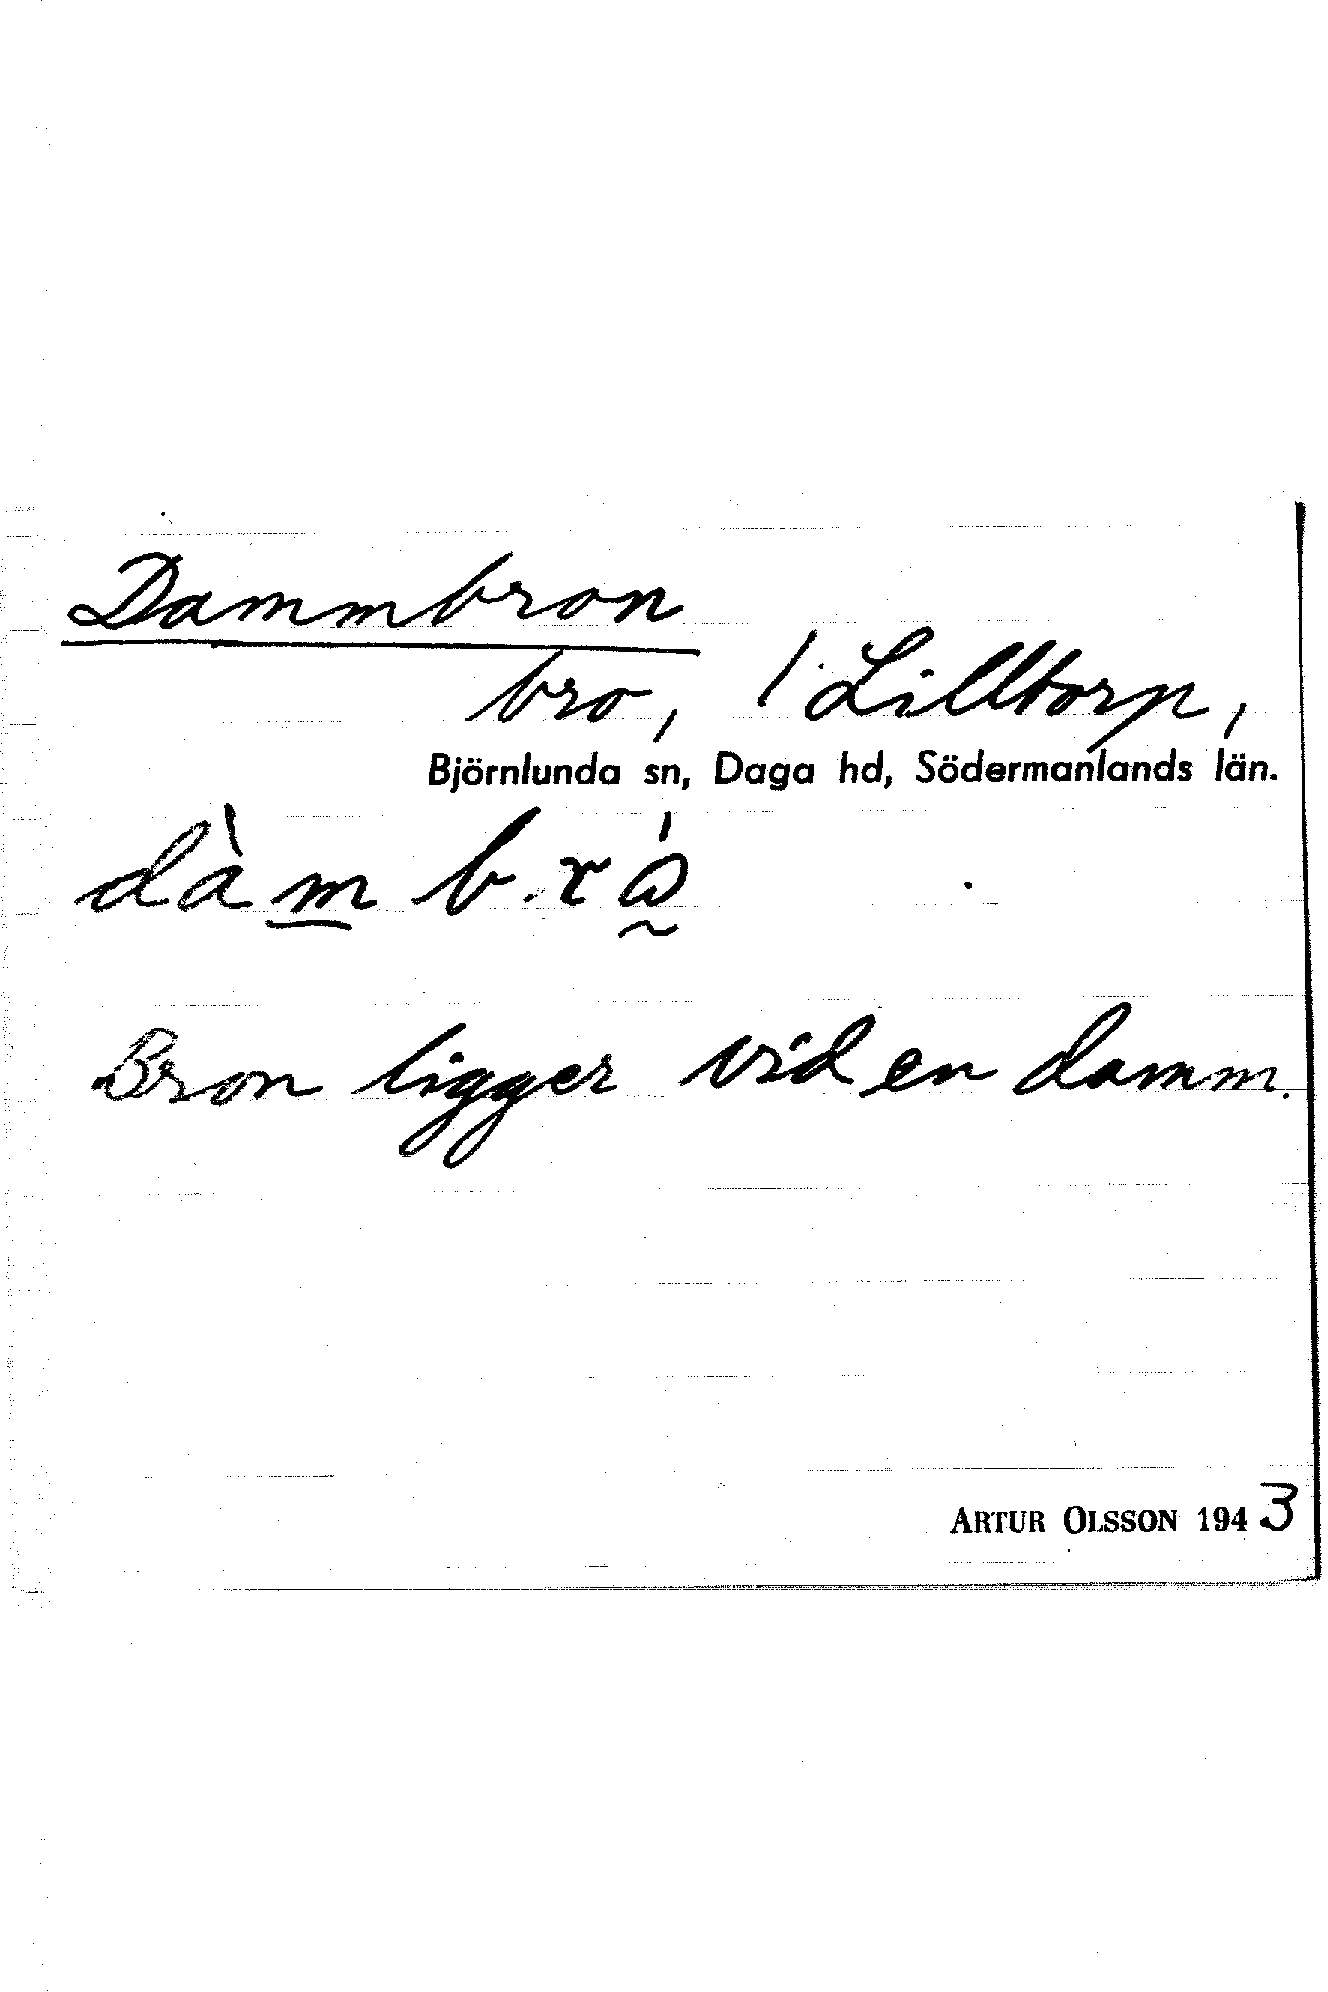 Dammbron
bro, / Lilltorp,
Björnlunda sn, Daga hd, Södermanlands län.
dàm b.rá̰
Bron ligger vid en damm.
ARTUR OLSSON 1943